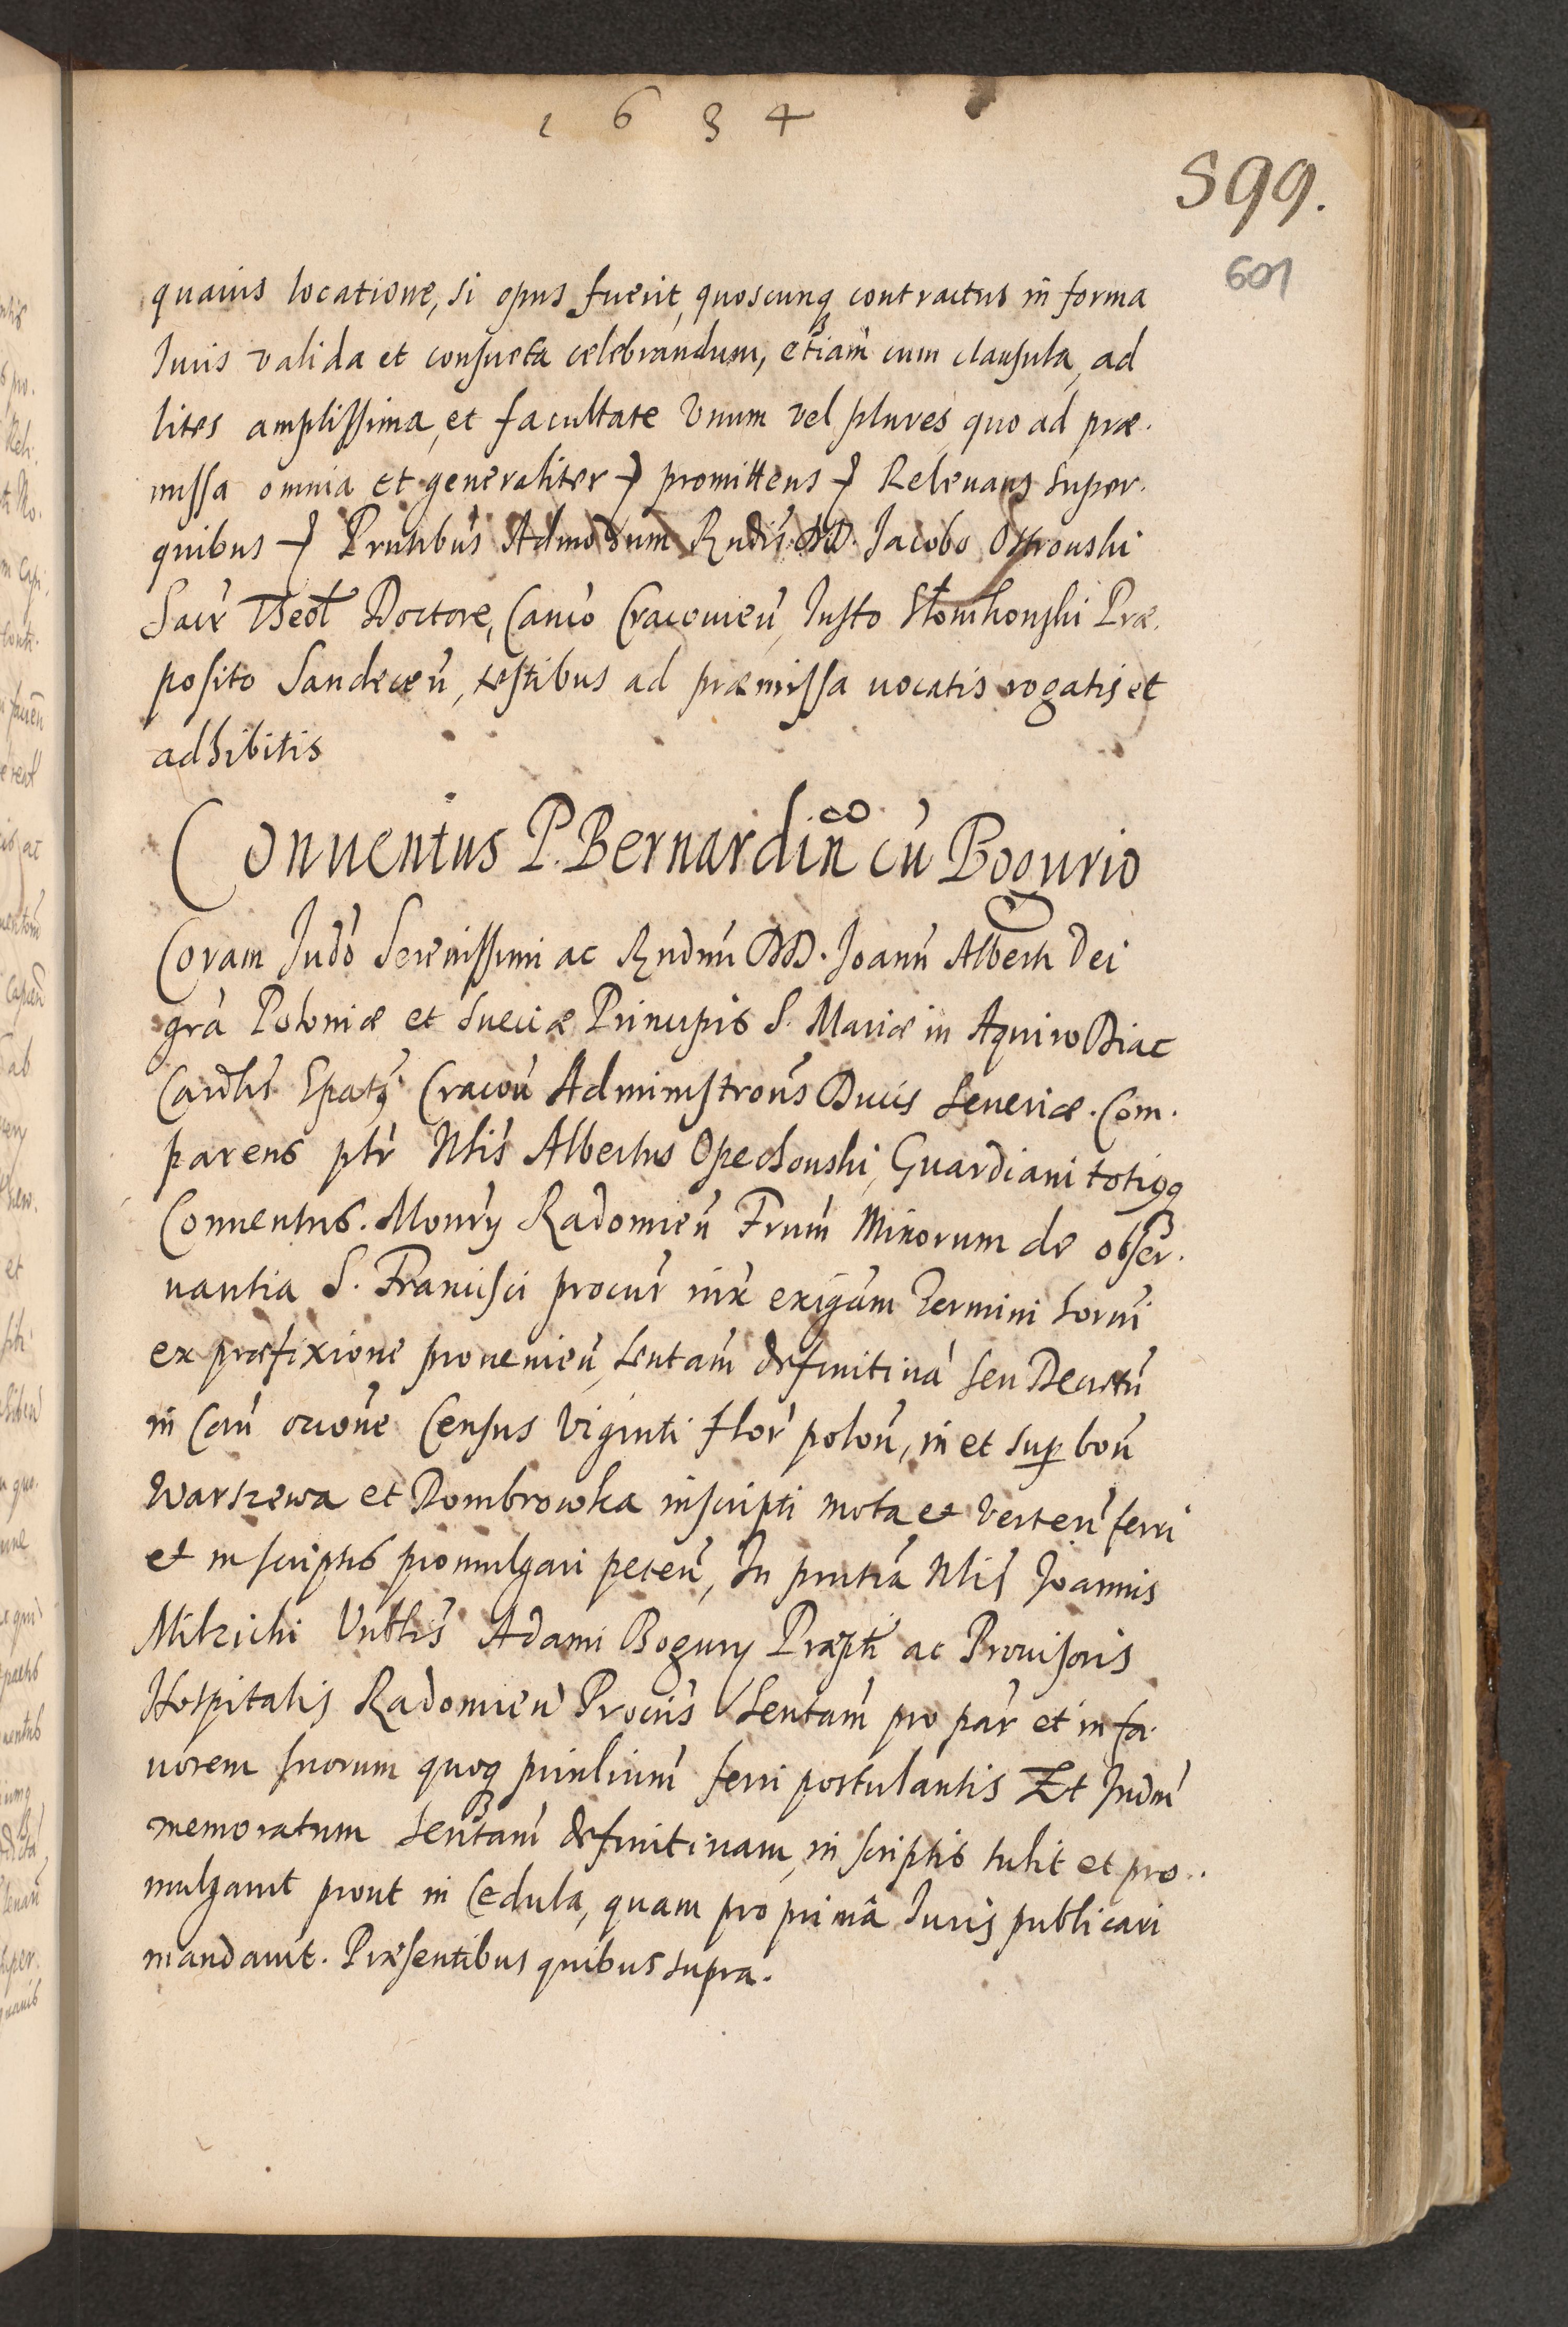 1 6 3 4
599.
601
quavis locatione, si opus fuerit, quoscunq contractus in forma
Iuris valida et consueta celebrandum, etiam cum clausula, ad
lites amplissima, et facultate Vnum vel plures quo ad præ.
missa omnia et generaliter promittens Relevans super.
quibus Pñtibus Admodum Rñdis DD. Jacobo Ostrouski
Sacr Theol Doctore, Canco Cracovieñ, Justo Słowikouski Præ.
posito Sandeceñ, testibus ad præmissa uocatis rogatis et
adhibitis
Conuentus P. Bernardin cũ Bogurio
Coram Judõ Serenissimi ac Rndmi DD. Joanñ Alberti Dei
grã Poloniæ et Sueciæ Principis S. Mariæ in Aquiro Diac
Cardlis Epatus Cracoũ Administroris Ducis Seueriæ. Com.
parens ptr Nlis Albertus Opechouski, Guardiani totiusq
Conuentus. Monrij Radomieñ Frum Minorum de obser.
uantia S. Francisci procur iux exigam Termini horni
ex præfixione proueñieñ, Sentam definitiuã seu Decretũ
in Cau occone Census Viginti flor poloñ, in et sup boñ
Warszewa et Dombrowka inscripti mota et verteñ ferri
et in scriptis promulgari peteñ, In pñtia Nlis Joannis
Milzicki Vnblis Adami Bogurij Præpti ac Prouisoris
Hospitalis Radomieñ Procris Sentam pro par et in fa.
uorem suorum quoq prinlium ferri postulantis Et Judm
memoratum Sentam definitiuam, in scriptis tulit et pro..
mulgauit prout in Cedula, quam pro primã Iuris publicari
mandauit. Præsentibus quibus supra.